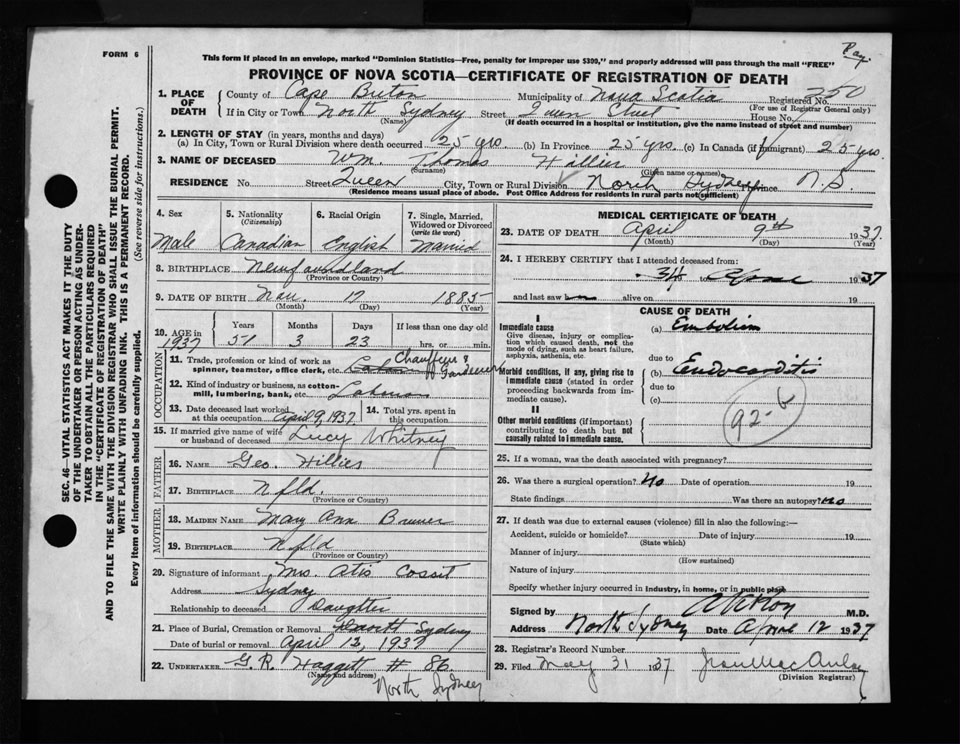 Pay.
FORM 6
This form if placed in an envelope, marked "Dominion Statistics—Free, penalty for improper use $300," and properly addressed will pass through the mail "FREE"
PROVINCE OF NOVA SCOTIA—CERTIFICATE OF REGISTRATION OF DEATH
1. PLACE OF DEATH County of Cape Breton Municipality of Nova Scotia Registered No. 250
(For use of Registrar General only)
If in City or Town North Sydney Street Queen Street House No.
(Name) (If death occurred in a hospital or institution, give the name instead of street and number)
2. LENGTH OF STAY (in years, months and days)
(a) In City, Town or Rural Division where death occurred 25 yrs. (b) In Province 25 yrs. (c) In Canada (if immigrant) 25 yrs.
3. NAME OF DECEASED Wm. Thomas Hillier
(Surname) (Given name or names)
RESIDENCE No. Street Queen City, Town or Rural Division North Sydney Province N.S.
(Residence means usual place of abode. Post Office Address for residents in rural parts not sufficient)
4. Sex 5. Nationality (Citizenship) 6. Racial Origin 7. Single, Married, Widowed or Divorced (write the word)
Male Canadian English Married
8. BIRTHPLACE Newfoundland
(Province or Country)
9. DATE OF BIRTH 17 1885
(Month) (Day) (Year)
10. AGE in 1937 Years Months Days If less than one day old
51 3 23 hrs. or min.
OCCUPATION
11. Trade, profession or kind of work as spinner, teamster, office clerk, etc. Chauffeur & Gardener
12. Kind of industry or business, as cotton-mill, lumbering, bank, etc.
13. Date deceased last worked at this occupation April 9, 1937 14. Total yrs. spent in this occupation
15. If married give name of wife or husband of deceased Lucy Whitney
FATHER
16. NAME Geo. Hillier
17. BIRTHPLACE Nfld.
(Province or Country)
MOTHER
18. MAIDEN NAME Mary Ann
19. BIRTHPLACE Nfld
(Province or Country)
20. Signature of informant Mrs. Atis Cossit
Address Sydney
Relationship to deceased Daughter
21. Place of Burial, Cremation or Removal North Sydney
Date of burial or removal April 12, 1937
22. UNDERTAKER G. R. Haggett # 86
(Name and address)
North Sydney
MEDICAL CERTIFICATE OF DEATH
23. DATE OF DEATH April 9th 1937
(Month) (Day) (Year)
24. I HEREBY CERTIFY that I attended deceased from:
34 to April 1937
and last saw alive on 19
CAUSE OF DEATH
I
Immediate cause (a) Embolism
Give disease, injury or complication which caused death, not the mode of dying, such as heart failure, asphyxia, asthenia, etc.
due to
Morbid conditions, if any, giving rise to immediate cause (stated in order proceeding backwards from immediate cause). (b) Endocarditis
due to
(c)
92-b
II
Other morbid conditions (if important) contributing to death but not causally related to immediate cause.
25. If a woman, was the death associated with pregnancy?
26. Was there a surgical operation? No Date of operation 19
State findings Was there an autopsy? no
27. If death was due to external causes (violence) fill in also the following:—
Accident, suicide or homicide? Date of injury 19
(State which)
Manner of injury
(How sustained)
Nature of injury
Specify whether injury occurred in industry, in home, or in public place
Signed by M.D.
Address North Sydney Date April 12 1937
28. Registrar's Record Number
29. Filed May 31 1937 Jean MacAulay
(Division Registrar)
SEC. 46—VITAL STATISTICS ACT MAKES IT THE DUTY
OF THE UNDERTAKER OR PERSON ACTING AS UNDER-
TAKER TO OBTAIN ALL THE PARTICULARS REQUIRED
IN THE "CERTIFICATE OF REGISTRATION OF DEATH"
AND TO FILE THE SAME WITH THE DIVISION REGISTRAR WHO SHALL ISSUE THE BURIAL PERMIT.
WRITE PLAINLY WITH UNFADING INK. THIS IS A PERMANENT RECORD.
Every item of information should be carefully supplied. (See reverse side for instructions.)